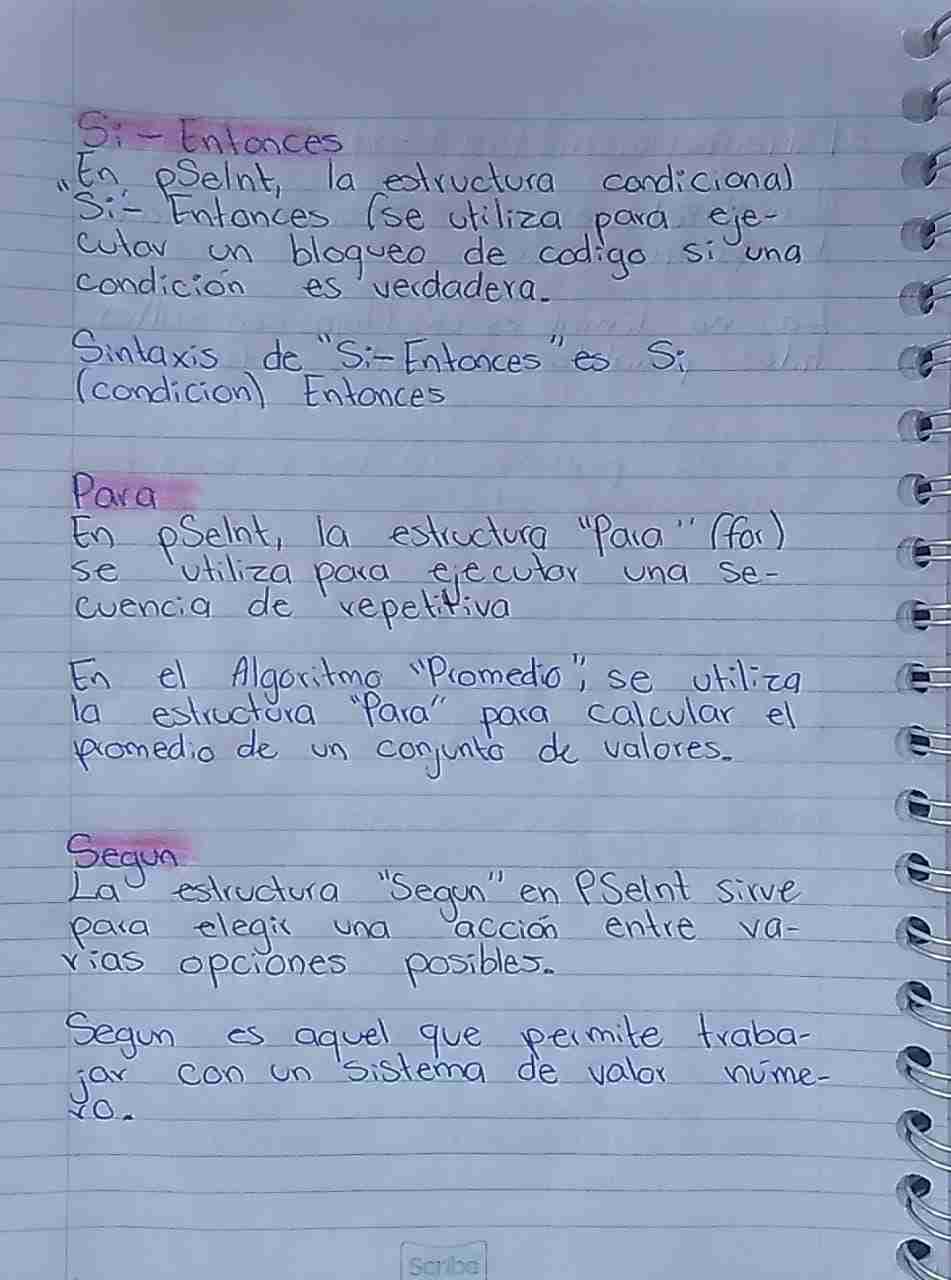 Si - Entonces
"En pSeInt, la estructura condicional
Si - Entonces (se utiliza para eje-
cutar un bloqueo de codigo si una
condición es verdadera.
Sintaxis de "Si-Entonces" es Si
(condicion) Entonces
Para
En pSeInt, la estructura "Para" (for)
se utiliza para ejecutar una se-
cuencia de repetitiva
En el Algoritmo "Promedio", se utiliza
la estructura "Para" para calcular el
promedio de un conjunto de valores.
Segun
La estructura "Segun" en PSeInt sirve
para elegir una acción entre va-
rias opciones posibles.
Segun es aquel que permite traba-
jar con un sistema de valor núme-
ro.
Scribe